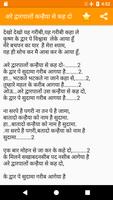 4:52
अरे द्वारपालों कन्हैया से कह दो
देखो देखो यह गरीबी,यह गरीबी का हाल
कृष्ण के द्वार पे विश्वास लेके आया हूँ
मेरे बचपन का यार है मेरा श्याम,
यही सोच कर मैं आस कर के आया हूँ
अरे द्वारपालों कन्हैया से कह दो.........2
के द्वार पे सुदामा गरीब आगया है.......2
हा... भटकते भटकते न जाने कहां से.......2
तुम्हारे महल के करीब आगया है.....2
ओ...अरे द्वारपालों कन्हैया से कह दो..
के द्वार पे सुदामा गरीब आगया है
ना सरपे है पगड़ी ना तन पे है जामा
बतादो कन्हैया को नाम है सुदामा.......2
हा...बतादो कन्हैया को नाम है सुदामा
बतादो कन्हैया को नाम है सुदामा..2
एक बार मोहन से जा कर के कह दो......2
के मिलने सखा बदनसीब आगया है
अरे द्वारपालों कन्हैया से कह दो..........2
के द्वार पे सुदामा गरीब आगया है